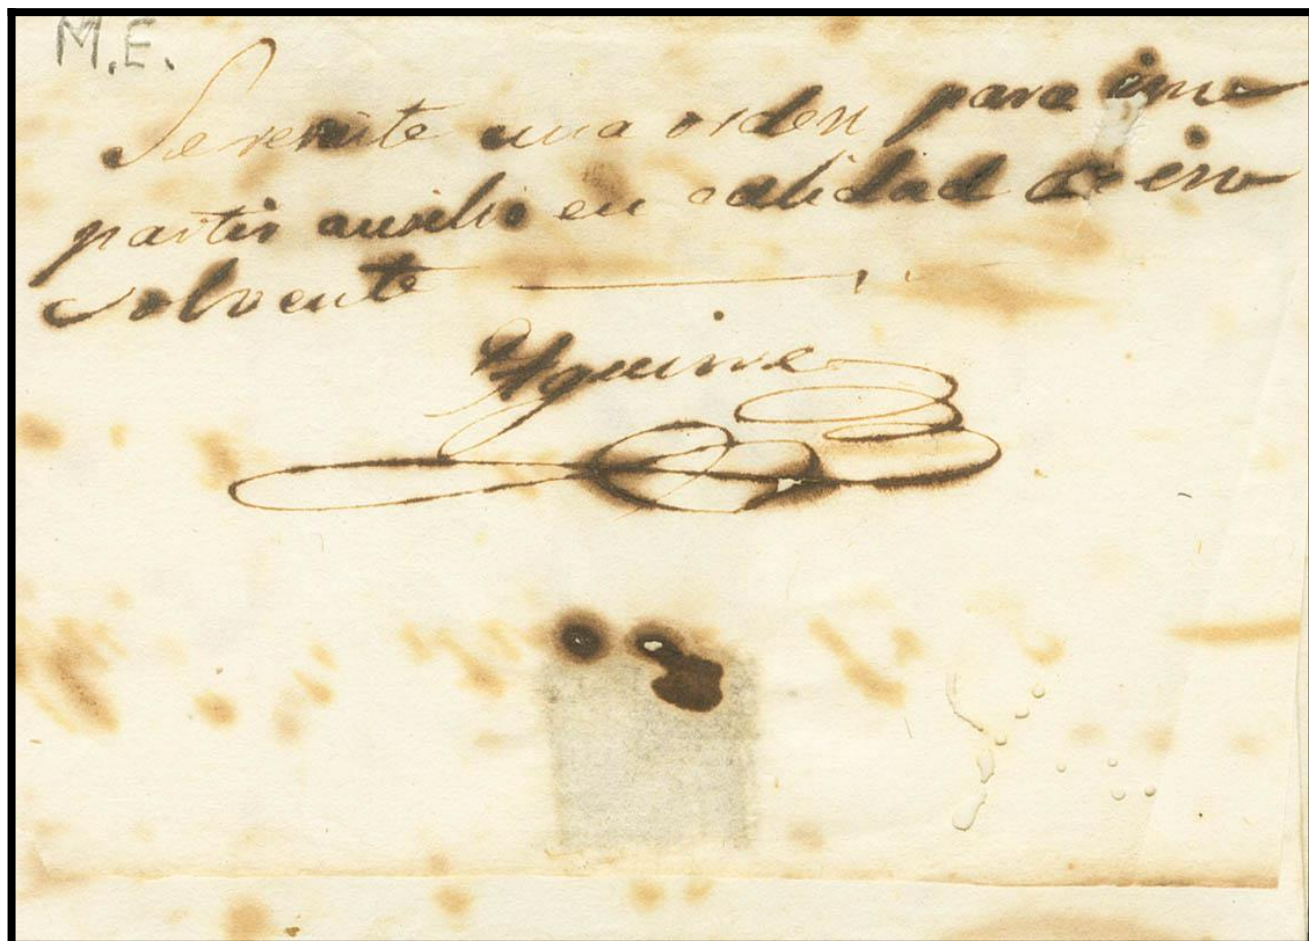 M.E.
Se remite una orden para im
partir ausilio en calidad de in
solvente
Yguine